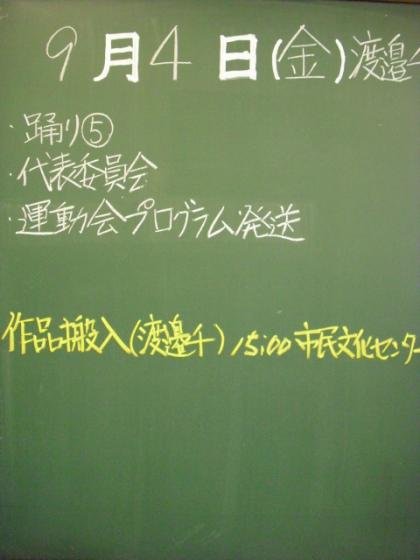 9月4日(金)渡邉千
・踊り⑤
・代表委員会
・運動会プログラム発送
作品搬入(渡邉千)15:00 市民文化センター